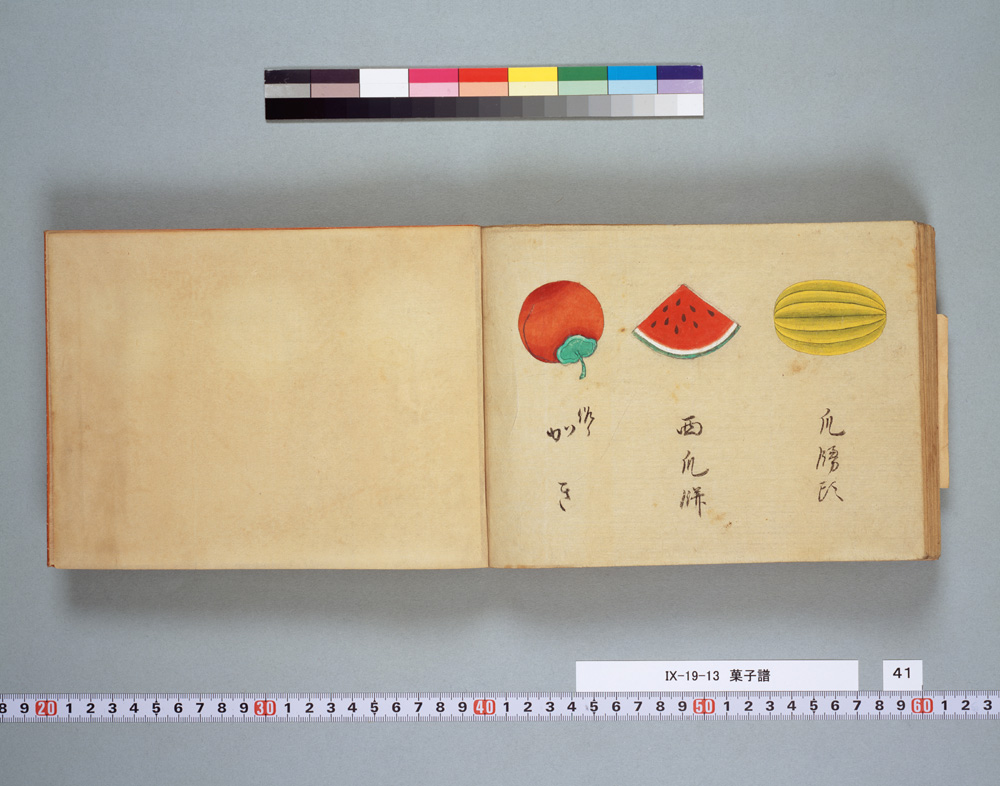 瓜饅頭
西瓜餅
かき
IX-19-13 菓子譜
41
8 9 20 1 2 3 4 5 6 7 8 9 30 1 2 3 4 5 6 7 8 9 40 1 2 3 4 5 6 7 8 9 50 1 2 3 4 5 6 7 8 9 60 1 2 3